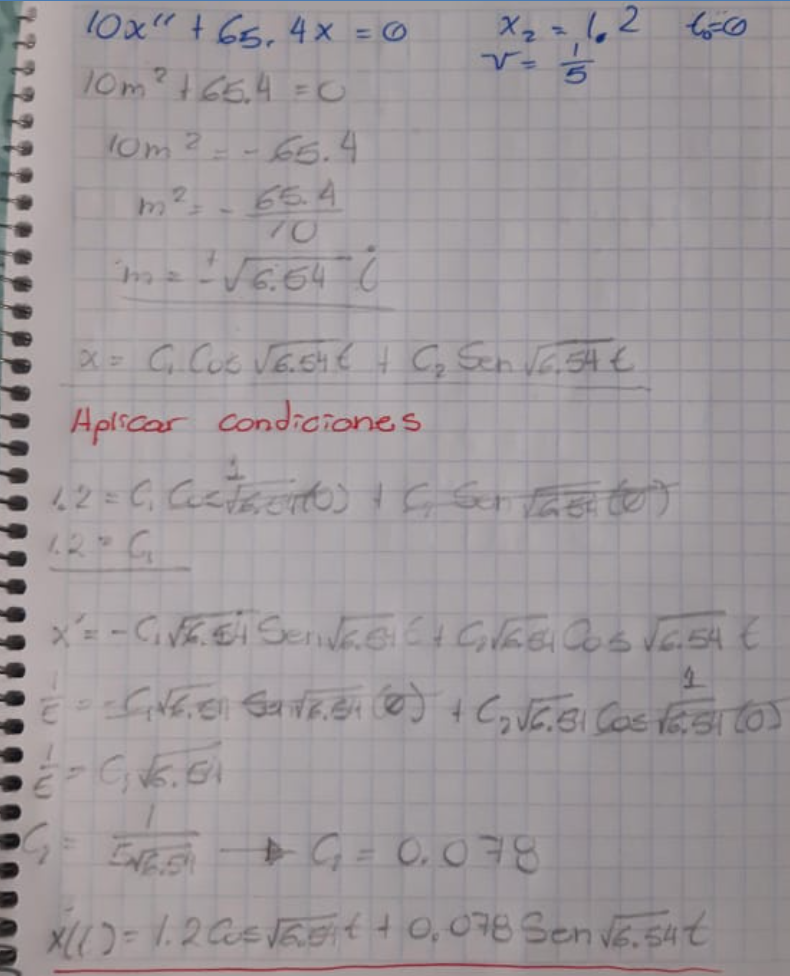 10x'' + 65.4x = 0    x₂ = 1.2    t₀=0
v = 1/5
10m² + 65.4 = 0
10m² = - 65.4
m² = - 65.4/10
m = ±√6.54 i
x = C₁ Cos √6.54 t + C₂ Sen √6.54 t
Aplicar condiciones
1.2 = C₁ Cos √6.54(0) 1 + C₁ Sen √6.54 (0)
1.2 = C₁
x' = -C₁√6.54 Sen√6.54 t + C₂√6.54 Cos √6.54 t
1/5 = -C₁√6.54 Sen√6.54 (0) + C₂√6.54 Cos √6.54 (0) 1
1/5 = C₂√6.54
C₂ = 1/5√6.54 → C₂ = 0.078
x(t) = 1.2 Cos √6.54 t + 0.078 Sen √6.54 t